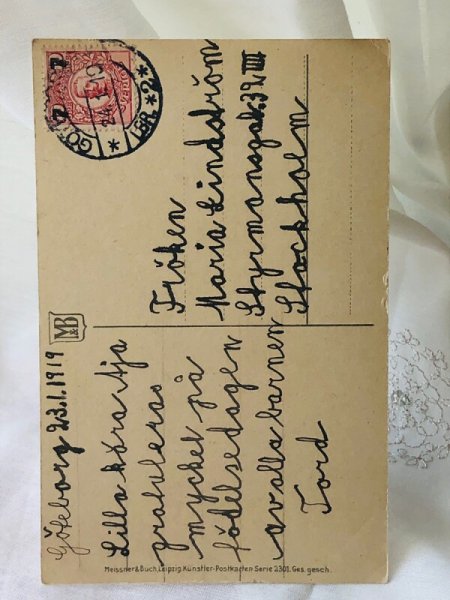 Göteborg 23.1.1919
Lilla kära Aja
gratuleras
mycket på
födelsedagen
av alla barnen
Tord
M&B
Fröken
Maria Lindström
Styrmansgat. 32 III
Stockholm
Meissner & Buch, Leipzig Künstler-Postkarten Serie 2301. Ges. gesch.